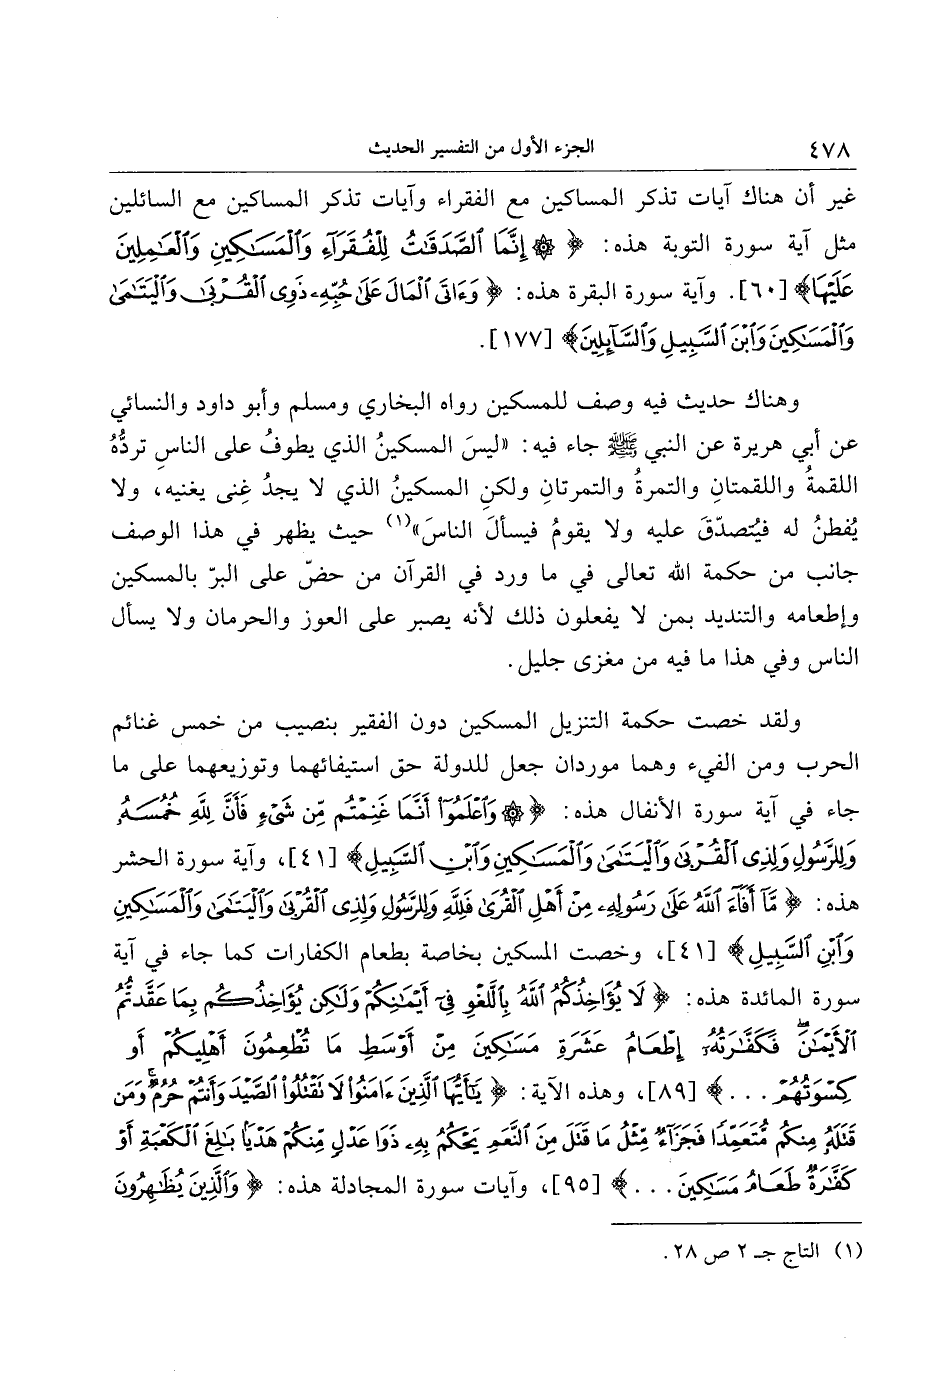 ٤٧٨ الجزء الأول من التفسير الحديث
غير أن هناك آيات تذكر المساكين مع الفقراء وآيات تذكر المساكين مع السائلين
مثل آية سورة التوبة هذه: ﴿ ۞ إِنَّمَا ٱلصَّدَقَٰتُ لِلْفُقَرَآءِ وَٱلْمَسَٰكِينِ وَٱلْعَٰمِلِينَ
عَلَيْهَا﴾ [٦٠]. وآية سورة البقرة هذه: ﴿ وَءَاتَى ٱلْمَالَ عَلَىٰ حُبِّهِۦ ذَوِى ٱلْقُرْبَىٰ وَٱلْيَتَٰمَىٰ
وَٱلْمَسَٰكِينَ وَٱبْنَ ٱلسَّبِيلِ وَٱلسَّآئِلِينَ﴾ [١٧٧].
وهناك حديث فيه وصف للمسكين رواه البخاري ومسلم وأبو داود والنسائي
عن أبي هريرة عن النبي ﷺ جاء فيه: «ليسَ المسكينُ الذي يطوفُ على الناسِ تردُّهُ
اللقمةُ واللقمتانِ والتمرةُ والتمرتانِ ولكنِ المسكينُ الذي لا يجدُ غِنى يغنيه، ولا
يُفطنُ له فيُتصدّقَ عليه ولا يقومُ فيسألَ الناسَ»(١) حيث يظهر في هذا الوصف
جانب من حكمة الله تعالى في ما ورد في القرآن من حضّ على البرّ بالمسكين
وإطعامه والتنديد بمن لا يفعلون ذلك لأنه يصبر على العوز والحرمان ولا يسأل
الناس وفي هذا ما فيه من مغزى جليل.
ولقد خصت حكمة التنزيل المسكين دون الفقير بنصيب من خمس غنائم
الحرب ومن الفيء وهما موردان جعل للدولة حق استيفائهما وتوزيعهما على ما
جاء في آية سورة الأنفال هذه: ﴿ ۞ وَٱعْلَمُوٓا۟ أَنَّمَا غَنِمْتُم مِّن شَىْءٍ فَأَنَّ لِلَّهِ خُمُسَهُۥ
وَلِلرَّسُولِ وَلِذِى ٱلْقُرْبَىٰ وَٱلْيَتَٰمَىٰ وَٱلْمَسَٰكِينِ وَٱبْنِ ٱلسَّبِيلِ﴾ [٤١]، وآية سورة الحشر
هذه: ﴿ مَّآ أَفَآءَ ٱللَّهُ عَلَىٰ رَسُولِهِۦ مِنْ أَهْلِ ٱلْقُرَىٰ فَلِلَّهِ وَلِلرَّسُولِ وَلِذِى ٱلْقُرْبَىٰ وَٱلْيَتَٰمَىٰ وَٱلْمَسَٰكِينِ
وَٱبْنِ ٱلسَّبِيلِ﴾ [٤١]، وخصت المسكين بخاصة بطعام الكفارات كما جاء في آية
سورة المائدة هذه: ﴿ لَا يُؤَاخِذُكُمُ ٱللَّهُ بِٱللَّغْوِ فِىٓ أَيْمَٰنِكُمْ وَلَٰكِن يُؤَاخِذُكُم بِمَا عَقَّدتُّمُ
ٱلْأَيْمَٰنَۖ فَكَفَّٰرَتُهُۥٓ إِطْعَامُ عَشَرَةِ مَسَٰكِينَ مِنْ أَوْسَطِ مَا تُطْعِمُونَ أَهْلِيكُمْ أَوْ
كِسْوَتُهُمْ ...﴾ [٨٩]، وهذه الآية: ﴿ يَٰٓأَيُّهَا ٱلَّذِينَ ءَامَنُوا۟ لَا تَقْتُلُوا۟ ٱلصَّيْدَ وَأَنتُمْ حُرُمٌۚ وَمَن
قَتَلَهُۥ مِنكُم مُّتَعَمِّدًا فَجَزَآءٌ مِّثْلُ مَا قَتَلَ مِنَ ٱلنَّعَمِ يَحْكُمُ بِهِۦ ذَوَا عَدْلٍ مِّنكُمْ هَدْيًۢا بَٰلِغَ ٱلْكَعْبَةِ أَوْ
كَفَّٰرَةٌ طَعَامُ مَسَٰكِينَ ...﴾ [٩٥]، وآيات سورة المجادلة هذه: ﴿ وَٱلَّذِينَ يُظَٰهِرُونَ
(١) التاج جـ ٢ ص ٢٨.